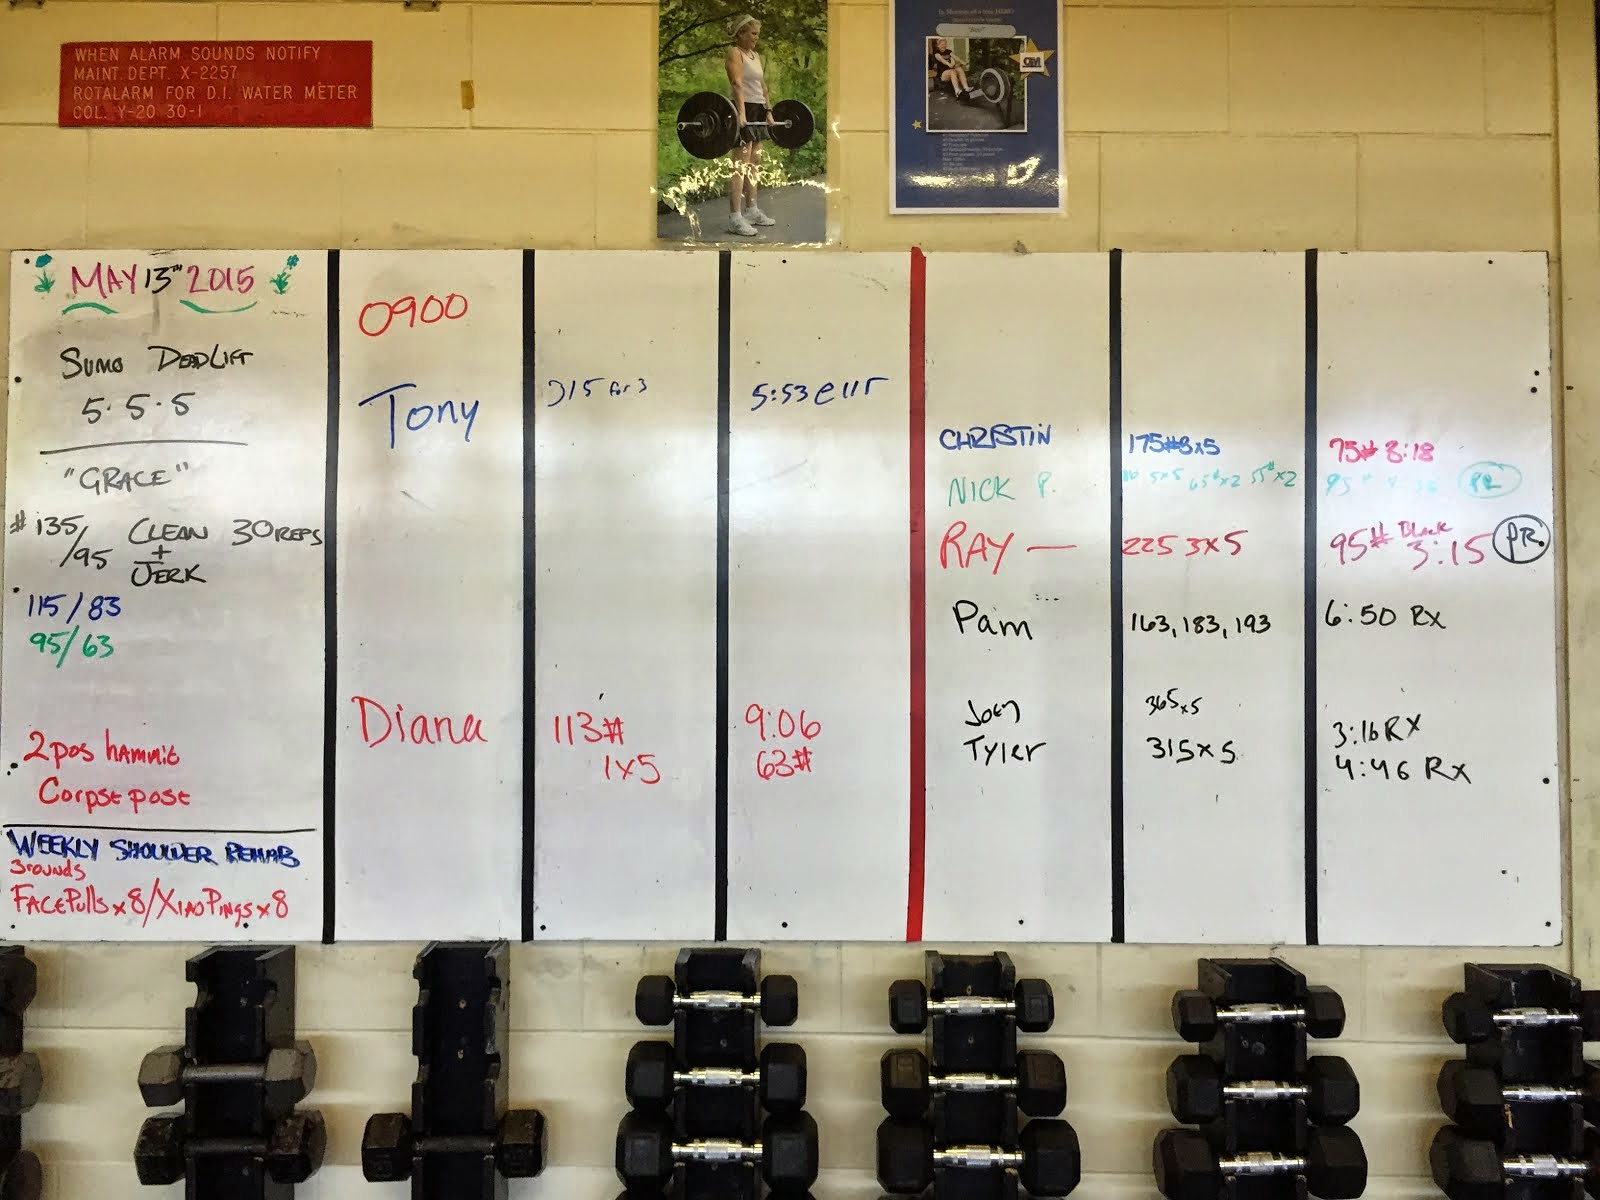 WHEN ALARM SOUNDS NOTIFY
MAINT. DEPT. X-2257
ROTALARM FOR D.I. WATER METER
COL. Y-20 30-1
MAY 13th 2015
SUMO DEADLIFT
5·5·5
"GRACE"
#135/95 CLEAN + JERK 30 REPS
115/83
95/63
2 pos hammie
Corpse pose
WEEKLY SHOULDER REHAB
3 rounds
FACE Pulls x 8/XIAO Pings x 8
0900
Tony 315 for 3 5:53 @ 115
Diana 113# 9:06
1x5 63#
CHRISTIN 175#3x5 75# 8:18
NICK P. 5x5 65#x2 55#x2 95# PR
RAY — 225 3x5 95# Black 3:15 PR
Pam 163, 183, 193 6:50 Rx
Joey 365x5 3:16 RX
Tyler 315x5 4:46 RX